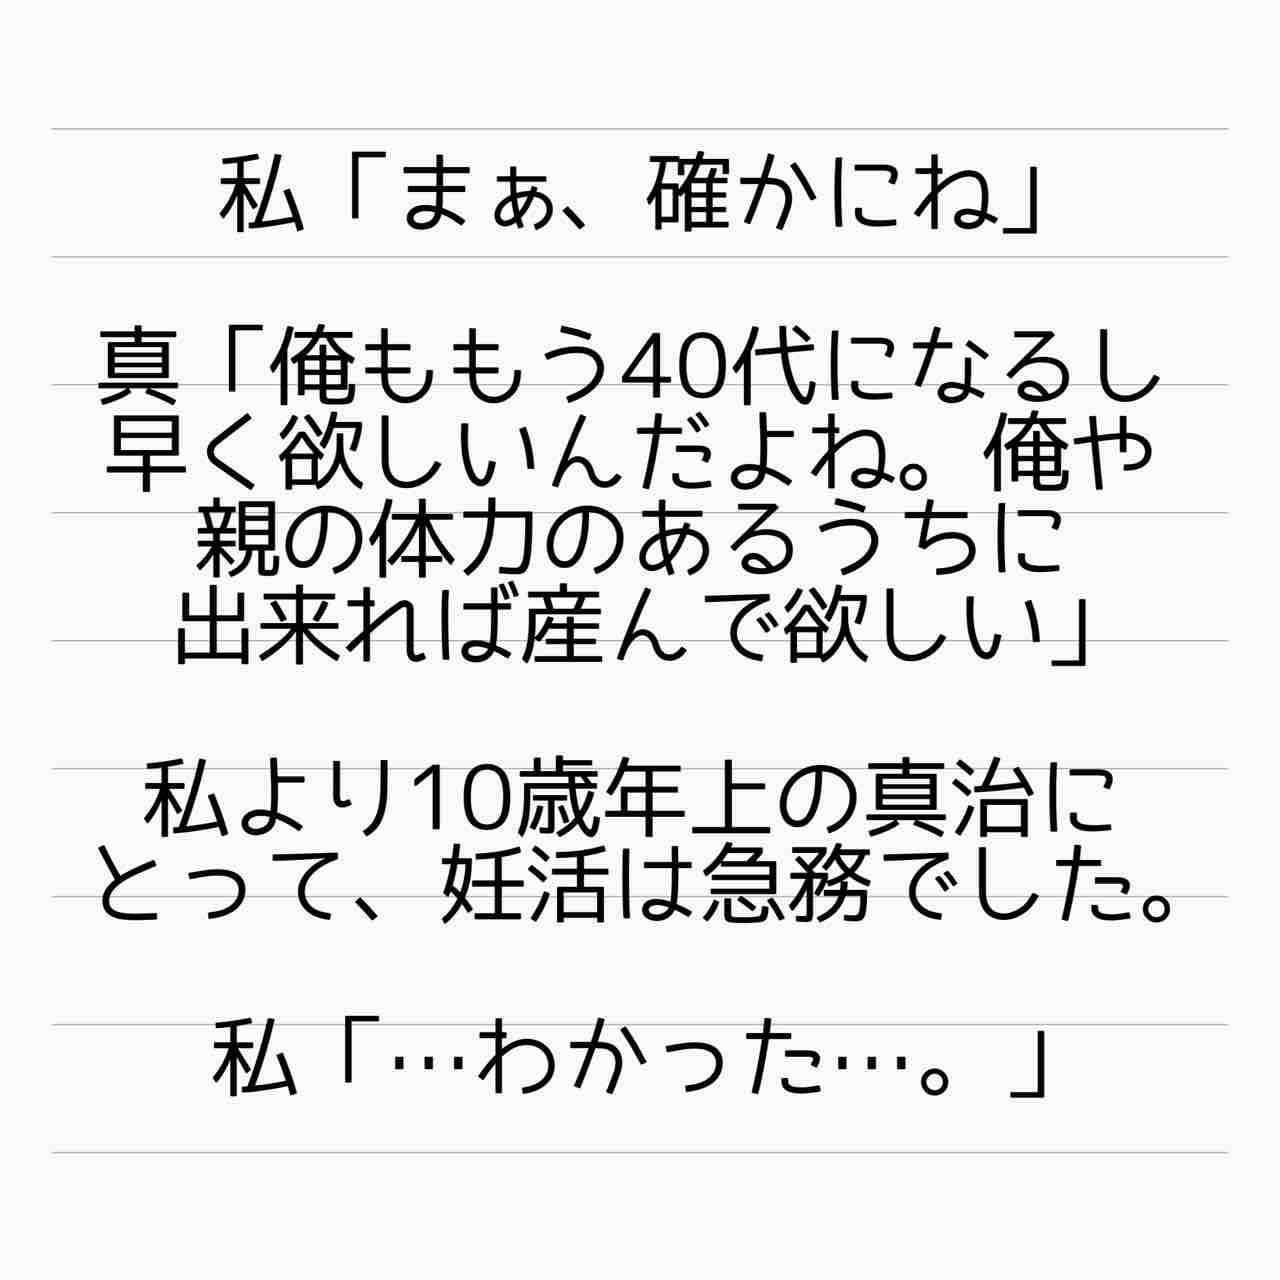 私「まぁ、確かにね」
真「俺ももう40代になるし
早く欲しいんだよね。俺や
親の体力のあるうちに
出来れば産んで欲しい」
私より10歳年上の真治に
とって、妊活は急務でした。
私「…わかった…。」